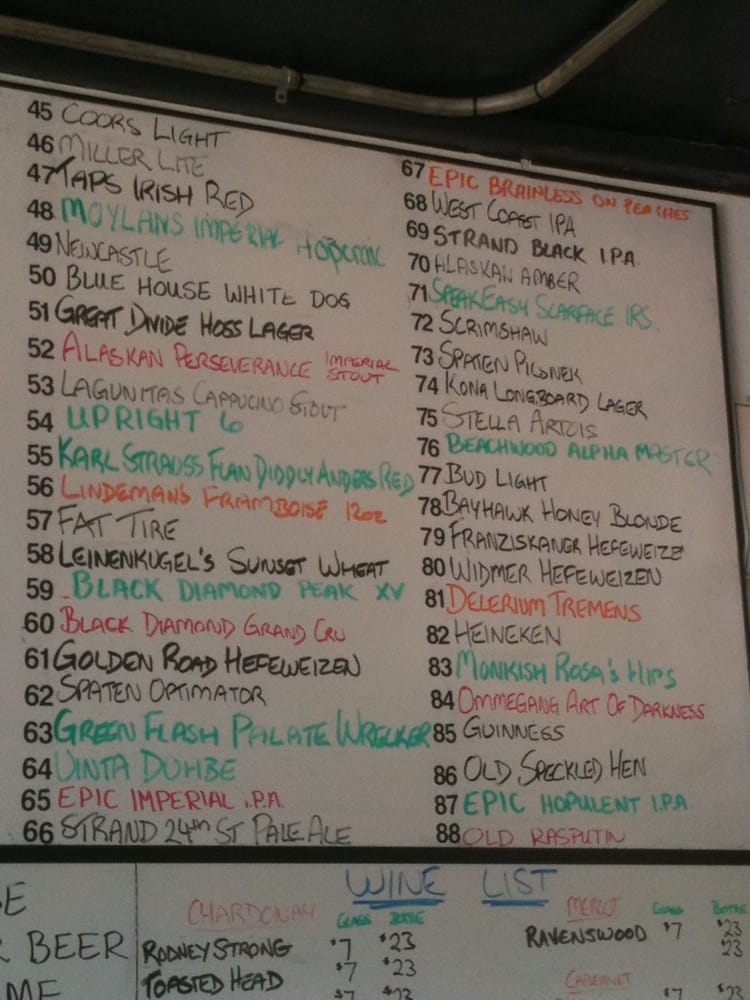 45 COORS LIGHT
46 MILLER LITE
47 TAPS IRISH RED
48 MOYLANS IMPERIAL
49 NEWCASTLE
50 BLUE HOUSE WHITE DOG
51 GREAT DIVIDE HOSS LAGER
52 ALASKAN PERSEVERANCE IMPERIAL STOUT
53 LAGUNITAS CAPPUCINO STOUT
54 UPRIGHT 6
55 KARL STRAUSS FLAN DIDDLY ANDERS RED
56 LINDEMAN'S FRAMBOISE 12oz
57 FAT TIRE
58 LEINENKUGEL'S SUNSET WHEAT
59 BLACK DIAMOND PEAK XV
60 BLACK DIAMOND GRAND CRU
61 GOLDEN ROAD HEFEWEIZEN
62 SPATEN OPTIMATOR
63 GREEN FLASH PALATE WRECKER
64 UINTA DUHBE
65 EPIC IMPERIAL I.P.A.
66 STRAND 24th ST PALE ALE
67 EPIC BRAINLESS ON PEACHES
68 WEST COAST IPA
69 STRAND BLACK I.P.A.
70 ALASKAN AMBER
71 SPEAKEASY SCARFACE IRS
72 SCRIMSHAW
73 SPATEN PILSNER
74 KONA LONGBOARD LAGER
75 STELLA ARTOIS
76 BEACHWOOD ALPHA MASTER
77 BUD LIGHT
78 BAYHAWK HONEY BLONDE
79 FRANZISKANER HEFEWEIZE
80 WIDMER HEFEWEIZEN
81 DELERIUM TREMENS
82 HEINEKEN
83 MONKISH ROSA'S HIPS
84 OMMEGANG ART OF DARKNESS
85 GUINNESS
86 OLD SPECKLED HEN
87 EPIC HOPULENT I.P.A
88 OLD RASPUTIN
BEER
ME
WINE LIST
CHARDONAY GLASS BOTTLE
RODNEY STRONG $7 $23
TOASTED HEAD $7 $23
$7 $23
MERLOT GLASS BOTTLE
RAVENSWOOD $7 $23
23
CABERNET
$7 $23